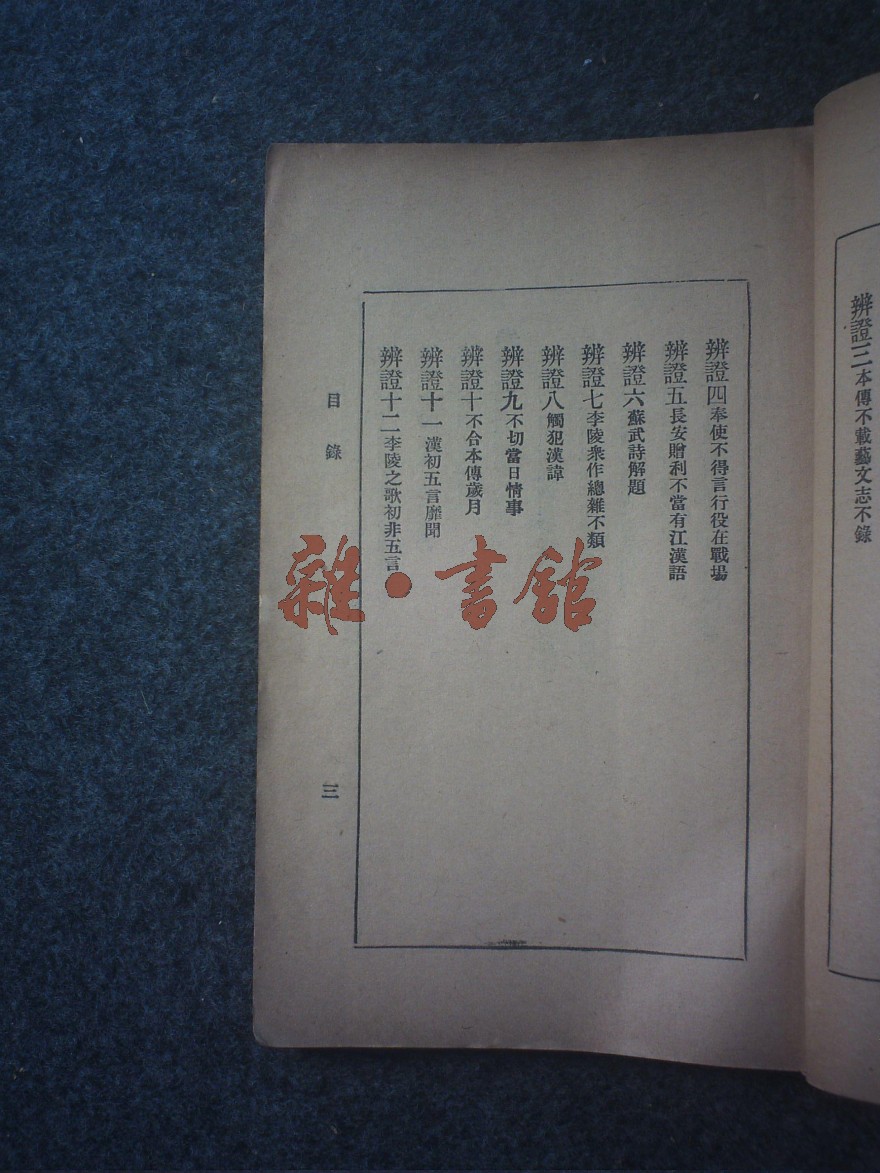 辨證三本傳不載藝文志不錄
辨證四奉使不得言行役在戰場
辨證五長安贈利不當有江漢語
辨證六蘇武詩解題
辨證七李陵衆作總雜不類
辨證八觸犯漢諱
辨證九不切當日情事
辨證十不合本傳歲月
辨證十一漢初五言靡聞
辨證十二李陵之歌初非五言
目錄
三
雜·書館